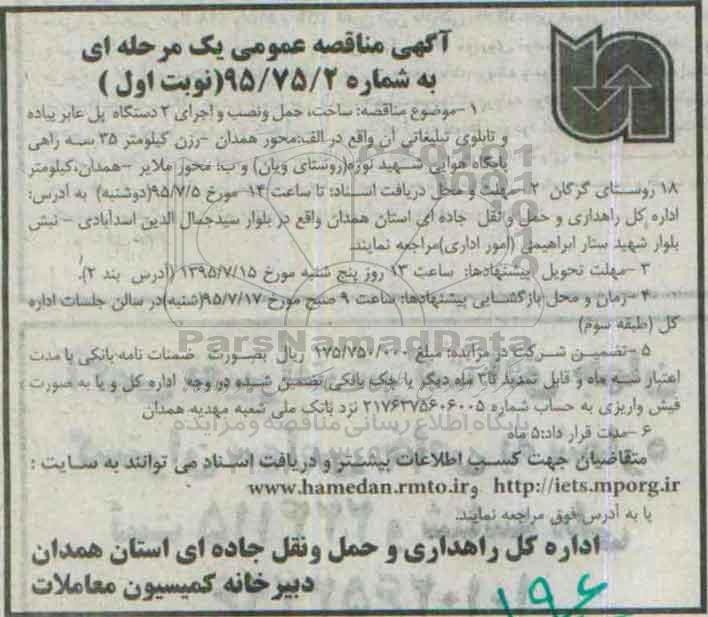 آگهی مناقصه عمومی یک مرحله ای
به شماره ۹۵/۷۵/۲(نوبت اول )
۱-موضوع مناقصه: ساخت، حمل ونصب و اجرای ۲ دستگاه پل عابر پیاده
و تابلوی تبلیغاتی آن واقع در الف:محور همدان -رزن کیلومتر ۳۵ سه راهی
پایگاه هوایی شهید نوژه(روستای ویان) و ب: محور ملایر -همدان،کیلومتر
۱۸ روستای گرگان ۲- مهلت و محل دریافت اسناد: تا ساعت ۱۴ مورخ ۹۵/۷/۵(دوشنبه) به آدرس:
اداره کل راهداری و حمل و نقل جاده ای استان همدان واقع در بلوار سیدجمال الدین اسدآبادی - نبش
بلوار شهید ستار ابراهیمی (امور اداری)مراجعه نمایند.
۳-مهلت تحویل پیشنهادها: ساعت ۱۳ روز پنج شنبه مورخ ۱۳۹۵/۷/۱۵ (آدرس بند ۲).
۴-زمان و محل بازگشایی پیشنهادها: ساعت ۹ صبح مورخ ۹۵/۷/۱۷(شنبه)در سالن جلسات اداره
کل (طبقه سوم)
۵-تضمین شرکت در مزایده: مبلغ ۱۷۵/۷۵۰/۰۰۰ ریال بصورت ضمنات نامه بانکی با مدت
اعتبار سه ماه و قابل تمدید تا۳ ماه دیگر یا چک بانکی تضمین شده در وجه اداره کل و یا به صورت
فیش واریزی به حساب شماره ۲۱۷۶۳۷۵۶۰۶۰۰۵ نزد بانک ملی شعبه مهدیه همدان
۶-مدت قرار داد:۵ ماه
متقاضیان جهت کسب اطلاعات بیشتر و دریافت اسناد می توانند به سایت :
http://iets.mporg.ir وwww.hamedan.rmto.ir
یا به آدرس فوق مراجعه نمایند.
اداره کل راهداری و حمل ونقل جاده ای استان همدان
دبیرخانه کمیسیون معاملات
ParsNamadData
پایگاه اطلاع رسانی مناقصه و مزایده